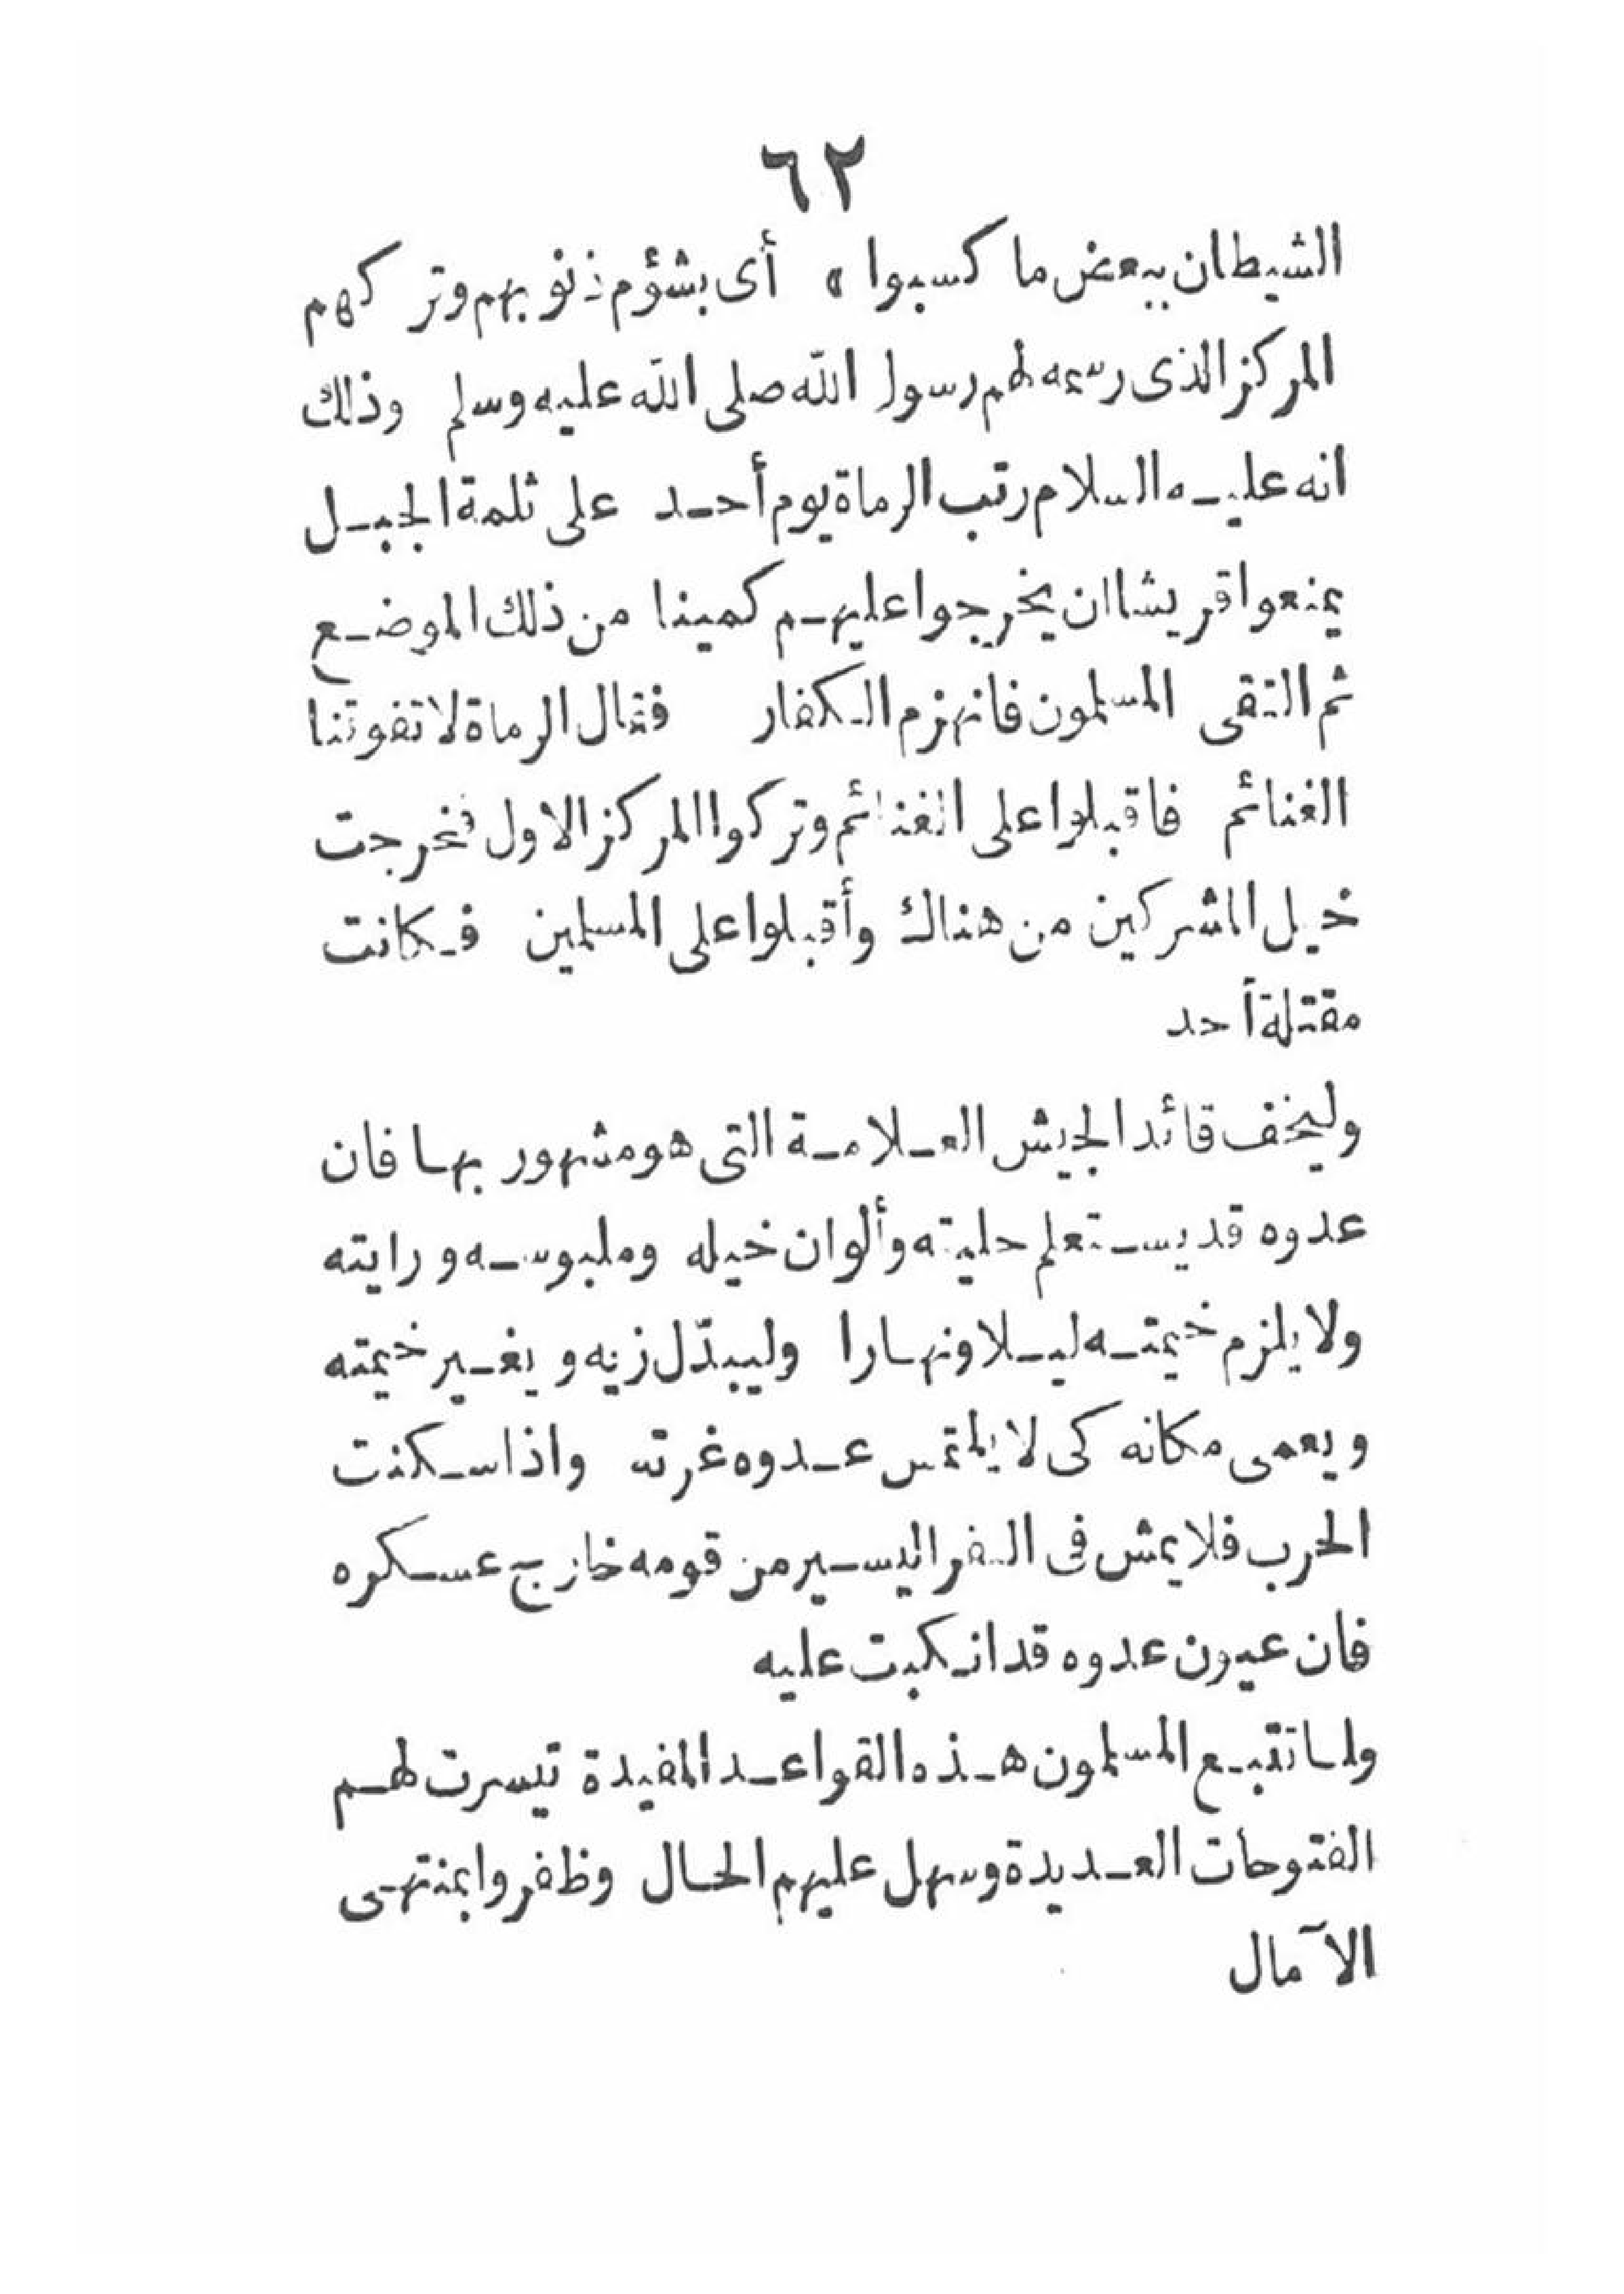 ٦٢
الشيطان ببعض ما كسبوا » أى بشؤم ذنوبهم وتركهم
المركز الذى رسمه لهم رسول الله صلى الله عليه وسلم وذلك
انه عليه السلام رتب الرماة يوم أحد على ثلمة الجبل
يمنعوا قريشا ان يخرجوا عليهم كمينا من ذلك الموضع
ثم التقى المسلمون فانهزم الكفار فقال الرماة لا تفوتنا
الغنائم فاقبلوا على الغنائم وتركوا المركز الاول فخرجت
خيل المشركين من هناك وأقبلوا على المسلمين فكانت
مقتلة أحد
وليخف قائد الجيش العلامة التى هو مشهور بها فان
عدوه قد يستعلم حليته وألوان خيله وملبوسه ورايته
ولا يلزم خيمته ليلا ونهارا وليبدّل زيه ويغير خيمته
ويعمى مكانه كى لا يلتمس عدوه غرته واذا سكنت
الحرب فلا يمش فى النفر اليسير من قومه خارج عسكره
فان عيون عدوه قد انكبت عليه
ولما تتبع المسلمون هذه القواعد المفيدة تيسرت لهم
الفتوحات العديدة وسهل عليهم الحال وظفروا بمنتهى
الآمال